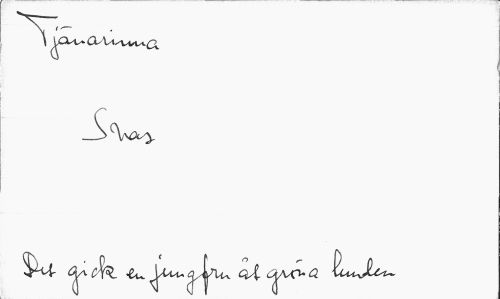 Tjänarinna
Snas
Det gick en jungfru åt gröna lunden